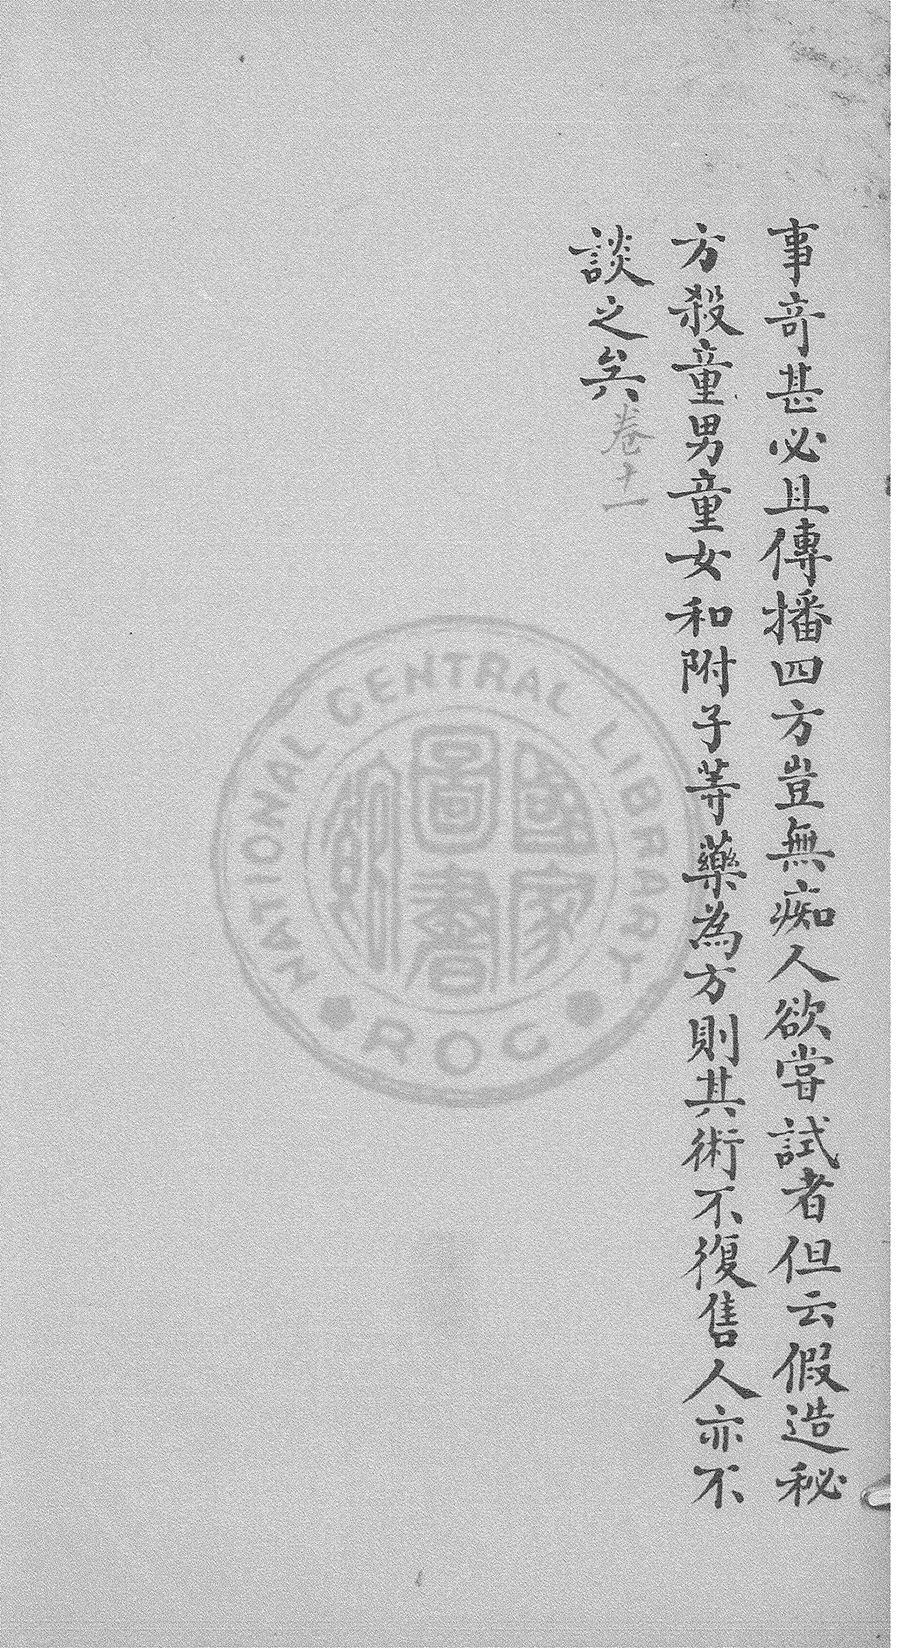 事奇甚必且傳播四方豈無痴人欲嘗試者但云假造秘
方殺童男童女和附子等藥為方則其術不復售人亦不
談之矣卷十一
NATIONAL CENTRAL LIBRARY
國家圖書館
ROC